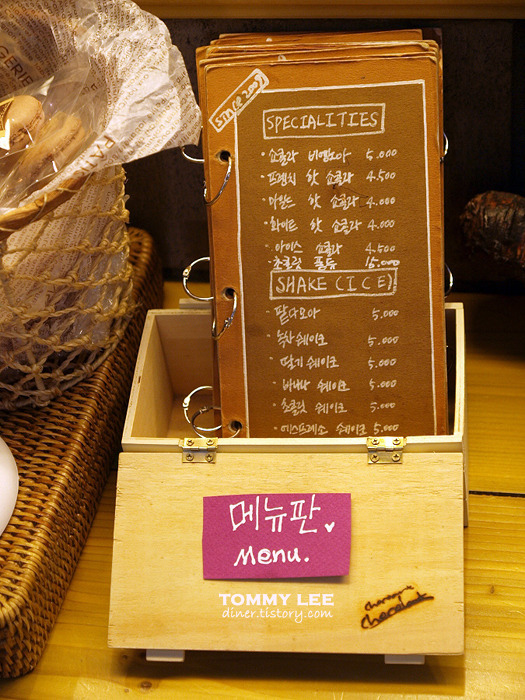 SINCE 2005
SPECIALITIES
· 쇼콜라 비엔노아 5.000
· 프렌치 핫 쇼콜라 4.500
· 마일드 핫 쇼콜라 4.000
· 화이트 핫 쇼콜라 4.000
· 아이스 쇼콜라 4.500
· 초콜릿 퐁듀 15.000
SHAKE (ICE)
· 팥다모아 5.000
· 녹차 쉐이크 5.000
· 딸기 쉐이크 5.000
· 바나나 쉐이크 5.000
· 초콜릿 쉐이크 5.000
· 에스프레소 쉐이크 5.000
메뉴판♥
Menu.
TOMMY LEE
diner.tistory.com
chocolat